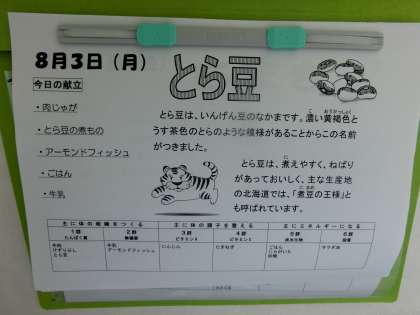 8月3日（月）
とら豆
今日の献立
・肉じゃが
・とら豆の煮もの
・アーモンドフィッシュ
・ごはん
・牛乳
とら豆は、いんげん豆のなかまです。濃い黄褐色と
うす茶色のとらのような模様があることからこの名前
がつきました。
とら豆は、煮えやすく、ねばり
があっておいしく、主な生産地
の北海道では、「煮豆の王様」と
も呼ばれています。
主に体の組織をつくる 主に体の調子を整える 主にエネルギーになる
1群 2群 3群 4群 5群 6群
たんぱく質 無機質 ビタミンA ビタミンC 炭水化物 脂質
牛肉 牛乳 にんじん たまねぎ ごはん サラダ油
とら豆 アーモンドフィッシュ じゃがいも
砂糖